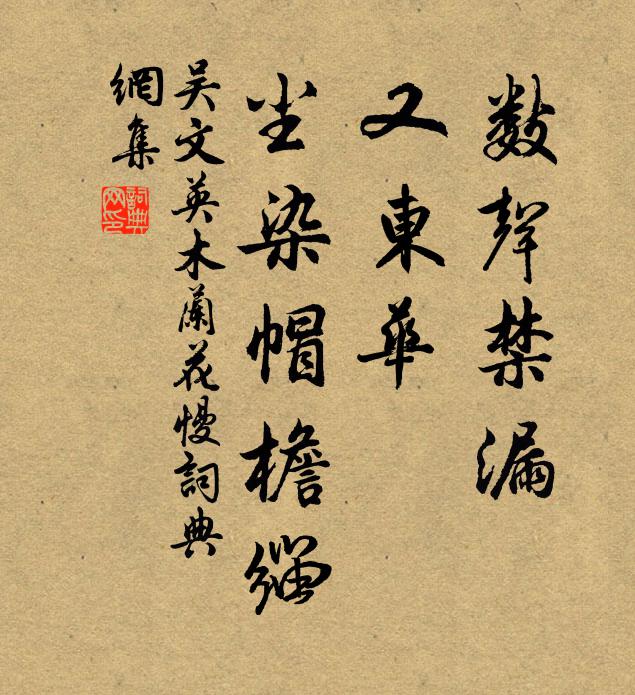 數聲禁漏
又東華
尘染帽檐緇
吴文英木蘭花慢詞典
網集
詞典
网印